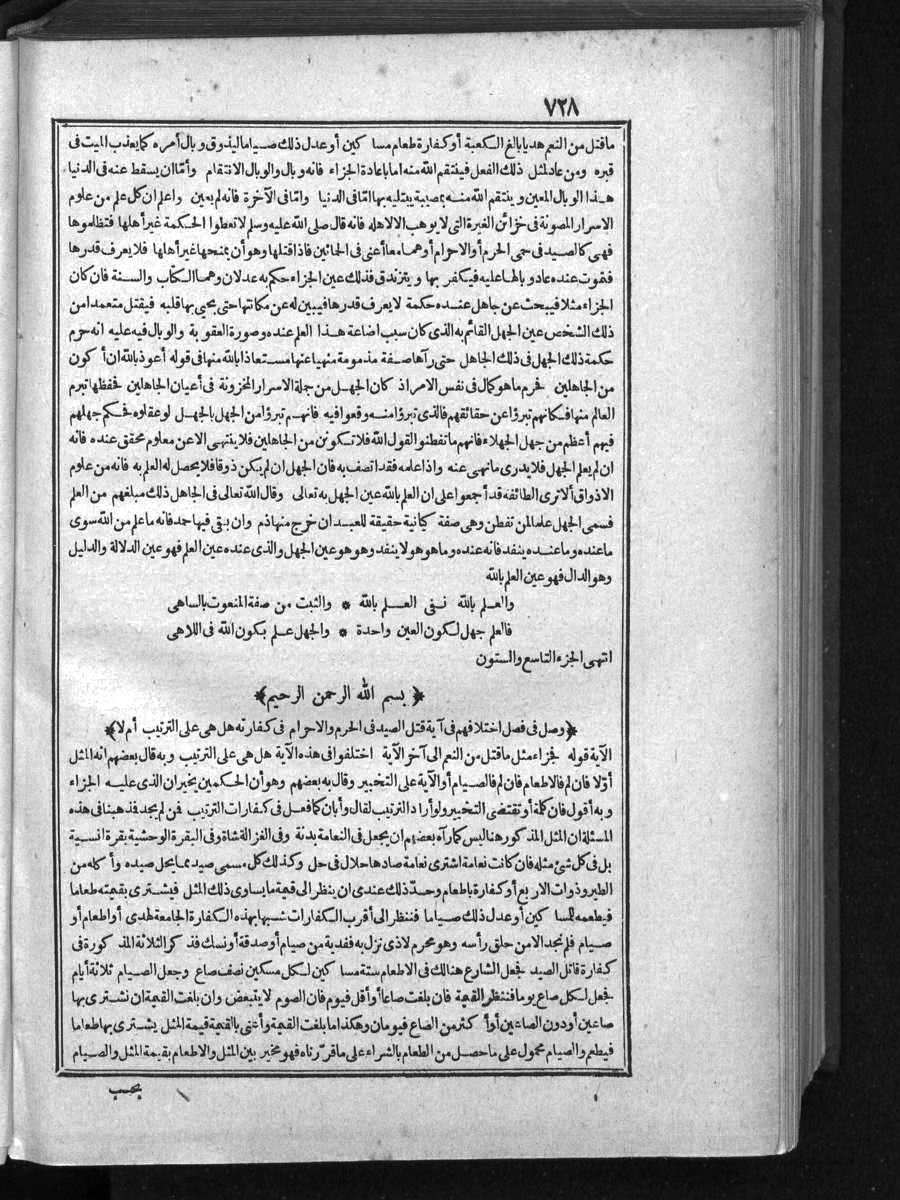 ٧٢٨
ما قتل من النعم هديا بالغ الكعبة أو كفارة طعام مساكين أو عدل ذلك صياما ليذوق وبال أمره كما يعذب الميت فى
قبره ومن عاد لمثل ذلك الفعل فينتقم الله منه اما باعادة الجزاء فانه وبال والوبال الانتقام وأمّا ان يسقط عنه فى الدنيا
هذا الوبال المعين وينتقم الله منه بمصيبة يبتليه بها امّا فى الدنيا وامّا فى الآخرة فانه لم يعين واعلم ان كل علم من علوم
الاسرار المصونة فى خزائن الغيرة التى لا يوهب الا لاهله فانه قال صلى الله عليه وسلم لا تعطوا الحكمة غير أهلها فتظلموها
فهى كالصيد فى حمى الحرم أو الاحرام أو هما معا أعنى فى الحالتين فاذا قتلها وهو أن يمنحها غير أهلها فلا يعرف قدرها
فتموت عنده عاد وبالها عليه فيكفر بها ويتزندق فذلك عين الجزاء حكم به عدلان وهما الكتاب والسنة فان كان
الجزاء مثلا فيبحث عن جاهل عنده حكمة لا يعرف قدرها فيبين له عن مكانتها حتى يحيى بها قلبه فيقتل متعمدا من
ذلك الشخص عين الجهل القائم به الذى كان سبب اضاعة هذا العلم عنده وصورة العقوبة والوبال فيه عليه انه حرم
حكمة ذلك الجهل فى ذلك الجاهل حتى رآها صفة مذمومة منهيا عنها مستعاذا بالله منها فى قوله أعوذ بالله ان أكون
من الجاهلين فحرم ما هو كمال فى نفس الامر اذ كان الجهل من جملة الاسرار المخزونة فى أعيان الجاهلين فحفظها تبرم
العالم منها فكانهم تبرؤا عن حقائقهم فالذى تبرؤا منه وقعوا فيه فانهم تبرؤا من الجهل بالجهل لو عقلوه فحكم جهلهم
فيهم أعظم من جهل الجهلاء فانهم ما تفطنوا لقول الله فلا تكونن من الجاهلين فلا ينتهى الا عن معلوم محقق عنده فانه
ان لم يعلم الجهل فلا يدرى ما نهى عنه واذا علمه فقد اتصف به فان الجهل ان لم يكن ذوقا فلا يحصل له العلم به فانه من علوم
الاذواق ألا ترى الطائفة قد أجمعوا على ان العلم بالله عين الجهل به تعالى وقال الله تعالى فى الجاهل ذلك مبلغهم من العلم
فسمى الجهل علما لمن تفطن وهى صفة كيانية حقيقة للعبد ان خرج منها ذم وان بقى فيها حمد فانه ما علم من الله سوى
ما عنده وما عنده ينفد فانه عنده وما هو هو لا ينفد وهو هو عين الجهل والذى عنده عين العلم فهو عين الدلالة والدليل
وهو الدال فهو عين العلم بالله
والعلم بالله نفى العلم بالله * والثبت من صفة المنعوت بالساهى
فالعلم جهل لكون العين واحدة * والجهل علم بكون الله فى اللاهى
انتهى الجزء التاسع والستون
﴿ بسم الله الرحمن الرحيم ﴾
﴿ وصل فى فصل اختلافهم فى آية قتل الصيد فى الحرم والاحرام فى كفارته هل هى على الترتيب أم لا ﴾
الآية قوله فجزاء مثل ما قتل من النعم الى آخر الآية اختلفوا فى هذه الآية هل هى على الترتيب وبه قال بعضهم انه المثل
أوّلا فان لم فالاطعام فان لم فالصيام أو الآية على التخيير وقال به بعضهم وهو أن الحكمين يخيران الذى عليه الجزاء
وبه أقول فان كلمة أو تقتضى التخيير ولو أراد الترتيب لقال وأبان كما فعل فى كفارات الترتيب فمن لم يجد فذهبنا فى هذه
المسئلة ان المثل المذكور هنا ليس كما رآه بعضهم ان يجعل فى النعامة بدنة وفى الغزالة شاة وفى البقرة الوحشية بقرة انسية
بل فى كل شئ مثله فان كانت نعامة اشترى نعامة صادها حلال فى حل وكذلك كل مسمى صيد مما يحل صيده وأكله من
الطير وذوات الاربع أو كفارة باطعام وحدّ ذلك عندى ان ينظر الى قيمة ما يساوى ذلك المثل فيشترى بقيمته طعاما
فيطعمه للمساكين أو عدل ذلك صياما فننظر الى أقرب الكفارات شبها بهذه الكفارة الجامعة لهدى أو اطعام أو
صيام فلم نجد الا من حلق رأسه وهو محرم لاذى نزل به ففدية من صيام أو صدقة أو نسك فذكر الثلاثة المذكورة فى
كفارة قاتل الصيد فجعل الشارع هنالك فى الاطعام ستة مساكين لكل مسكين نصف صاع وجعل الصيام ثلاثة أيام
فجعل لكل صاع يوما فننظر القيمة فان بلغت صاعا أو أقل فيوم فان الصوم لا يتبعض وان بلغت القيمة ان نشترى بها
صاعين أو دون الصاعين أو أكثر من الصاع فيومان وهكذا ما بلغت القيمة وأعنى بالقيمة قيمة المثل يشترى بها طعاما
فيطعم والصيام محمول على ما حصل من الطعام بالشراء على ما قرّرناه فهو مخير بين المثل والاطعام بقيمة المثل والصيام
بحسب